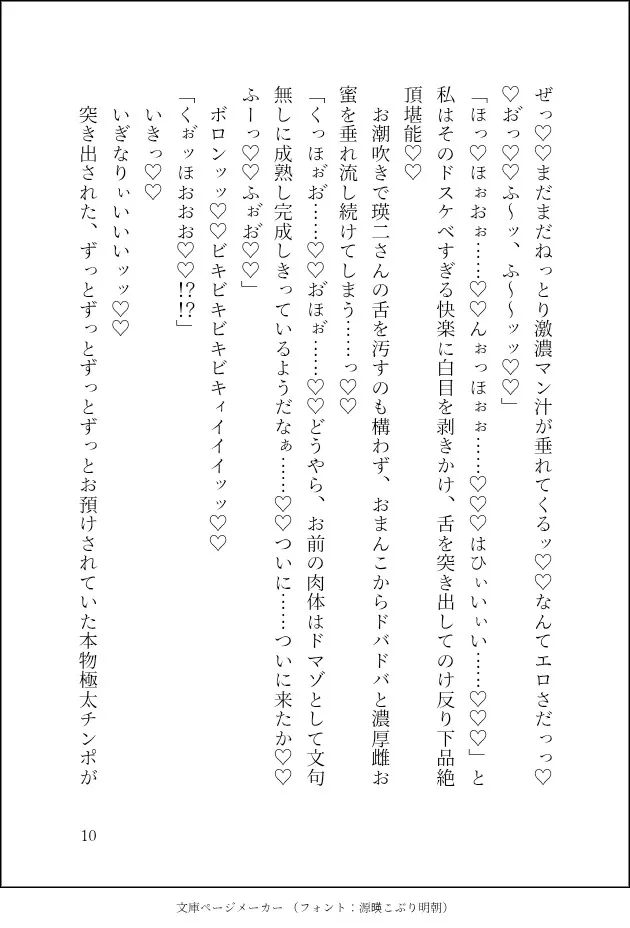 ぜっ♡♡まだまだねっとり激濃マン汁が垂れてくるッ♡♡なんてエロさだっっ♡
♡お゙っ♡♡ふ～ッ、ふ～～ッッ♡♡」
「ほっ♡ほぉおぉ……♡♡んぉっほぉぉ……♡♡♡はひぃいぃい……♡♡♡」と
私はそのドスケベすぎる快楽に白目を剥きかけ、舌を突き出してのけ反り下品絶
頂堪能♡♡
お潮吹きで瑛二さんの舌を汚すのも構わず、おまんこからドバドバと濃厚雌お
蜜を垂れ流し続けてしまう……っ♡♡
「くっほぉ゙お゙……♡♡お゙ほぉ゙……♡♡どうやら、お前の肉体はドマゾとして文句
無しに成熟し完成しきっているようだなぁ……♡♡ついに……ついに来たか♡♡
ふーっ♡♡ふぉ゙お゙♡♡」
ボロンッッ♡♡ビキビキビキビキィイイイッッ♡♡
「くぉ゙ッほおおお♡♡!?!?」
いきっ♡♡
いぎなりぃいいいッッ♡♡
突き出された、ずっとずっとずっとずっとお預けされていた本物極太チンポが
10
文庫ページメーカー （フォント：源暎こぶり明朝）